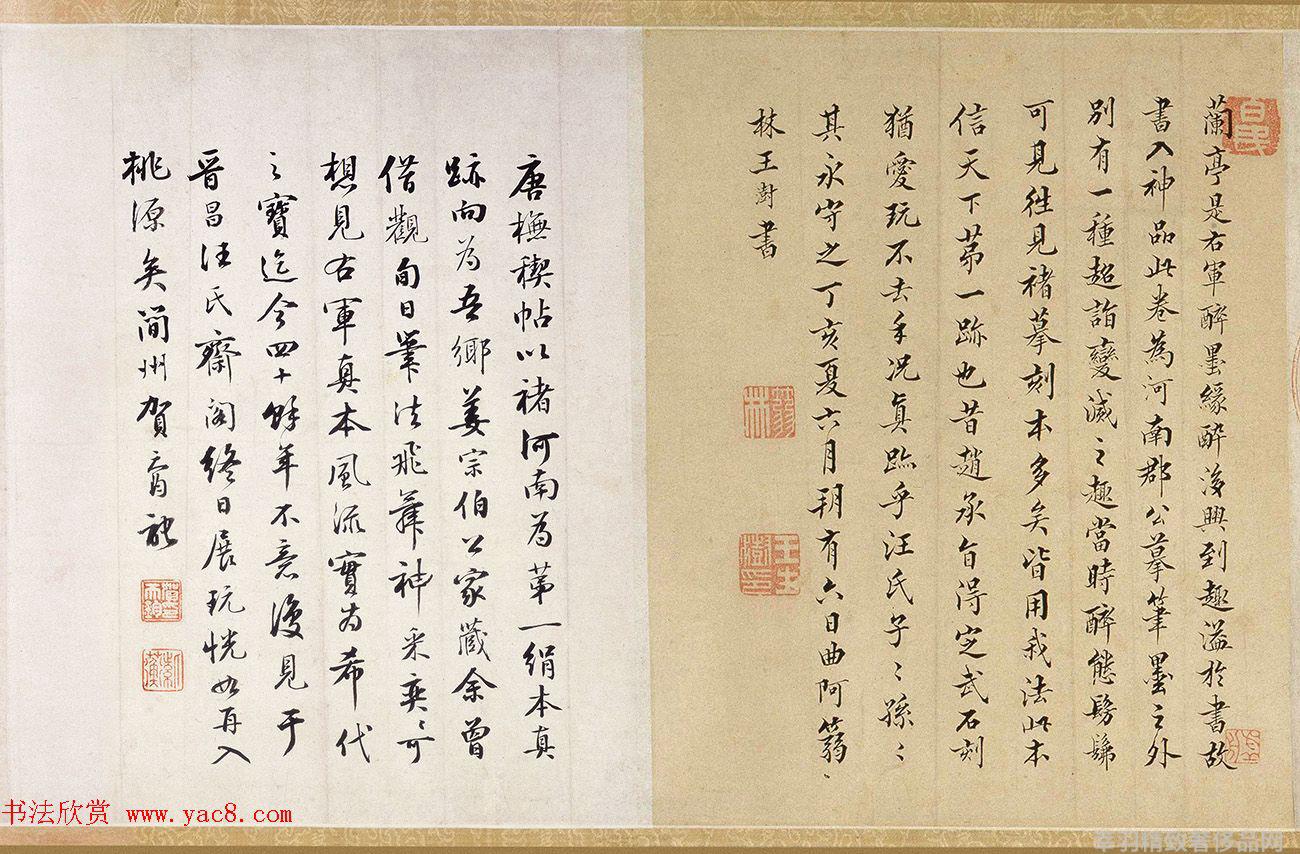 蘭亭是右軍醉墨緣醉後興到趣溢於書故
書入神品此卷為河南郡公摹筆墨之外
別有一種超詣變滅之趣當時醉態髣髴
可見往見褚摹刻本多矣皆用我法此本
信天下苐一跡也昔趙承旨得定武石刻
猶愛玩不去手况真跡乎汪氏子〻孫〻
其永守之丁亥夏六月朔有六日曲阿蒻〻
林王澍書
唐橅禊帖以褚河南為苐一絹本真
跡向為吾鄉姜宗伯公家藏余曾
借觀旬日筆法飛舞神采奕〻可
想見右軍真本風流實為希代
之寶迄今四十餘年不意復見于
晉昌汪氏齋閣終日展玩恍如再入
桃源矣蘭州賀
书法欣赏 www.yac8.com